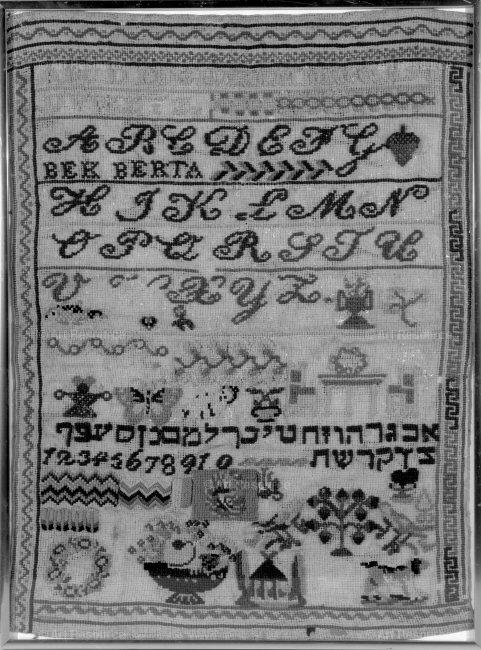 A B C D E F G
BEK BERTA
H I K L M N
O P Q R S T U
V X Y Z
אבגדהוזחטיכךלמםנןסעפף
1 2 3 4 5 6 7 8 9 1 0
צץקרשת